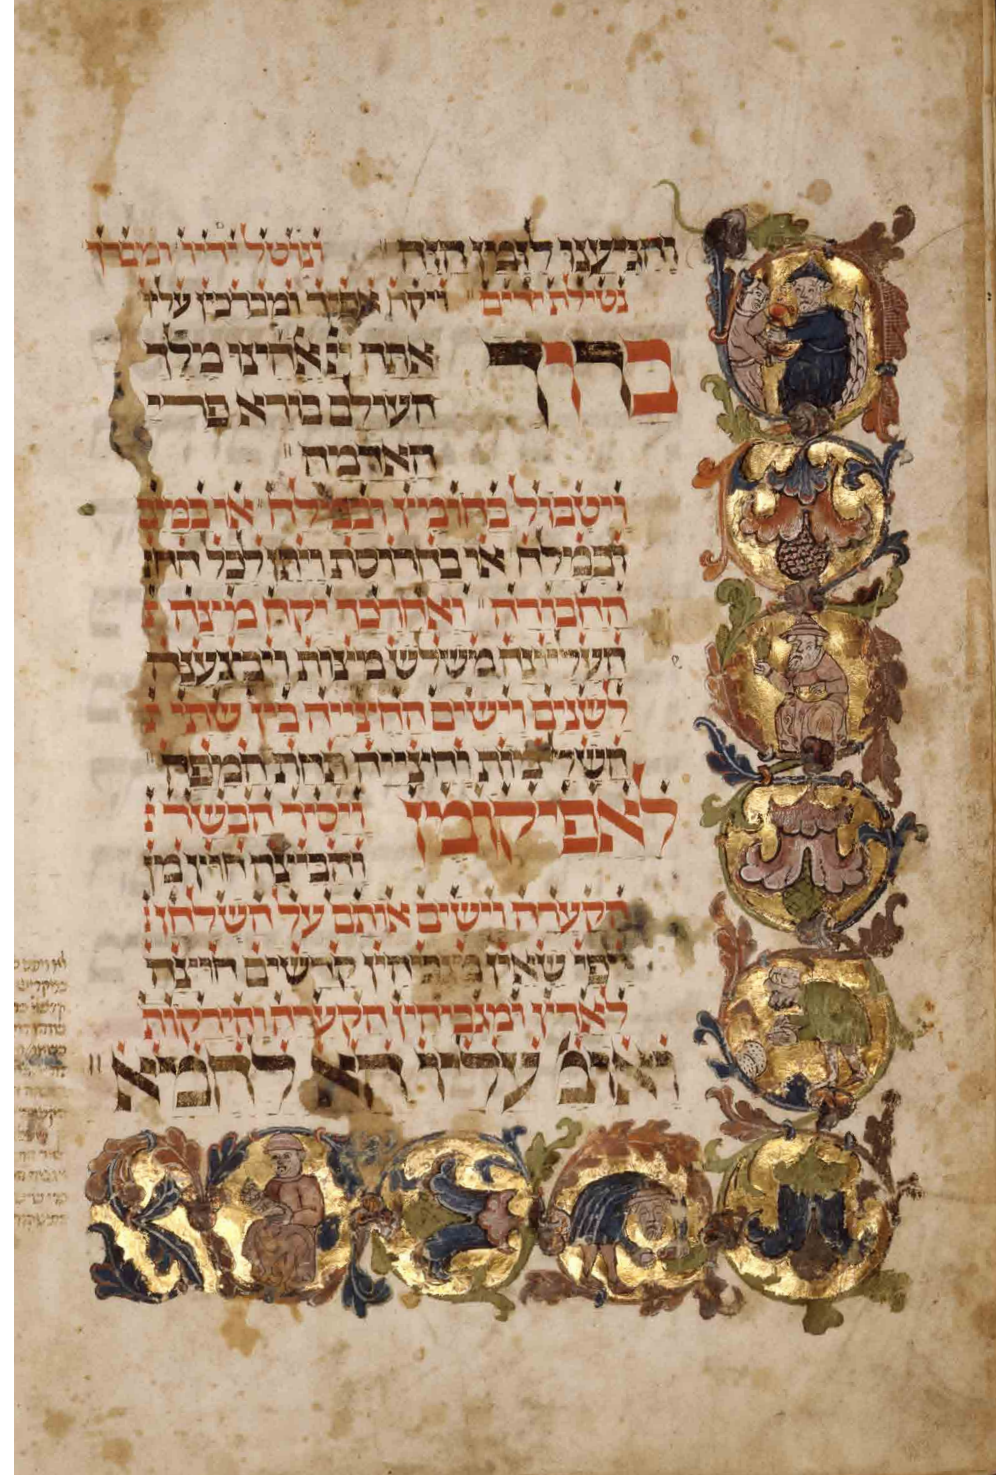 והגיענו לזמן הזה ונוטל ידיו ומברך
נטילת ידים ויקח אפיך ומברכין עליו
ברוך אתה יי אלהינו מלך
העולם בורא פרי
האדמה
ויטבול בחומץ ובמילח או במים
ובמילח או בחרוסת ויתן לכל חד
החבורה ואחר כך יקח מיצה
העליונה משלש מיצות ויבצענה
לשנים וישים החיצייה בין שתי
השלימות וחיצייה תחת המפה
לאפיקומן ויסיר הבשר
והביצה חוץ מן
הקערה וישים אותם על השלחן
לפי שאין מגביהין קדשים חוצה
לארץ ומגביהין הקערה והירקות
ואומ׳ עליו הא לחמא